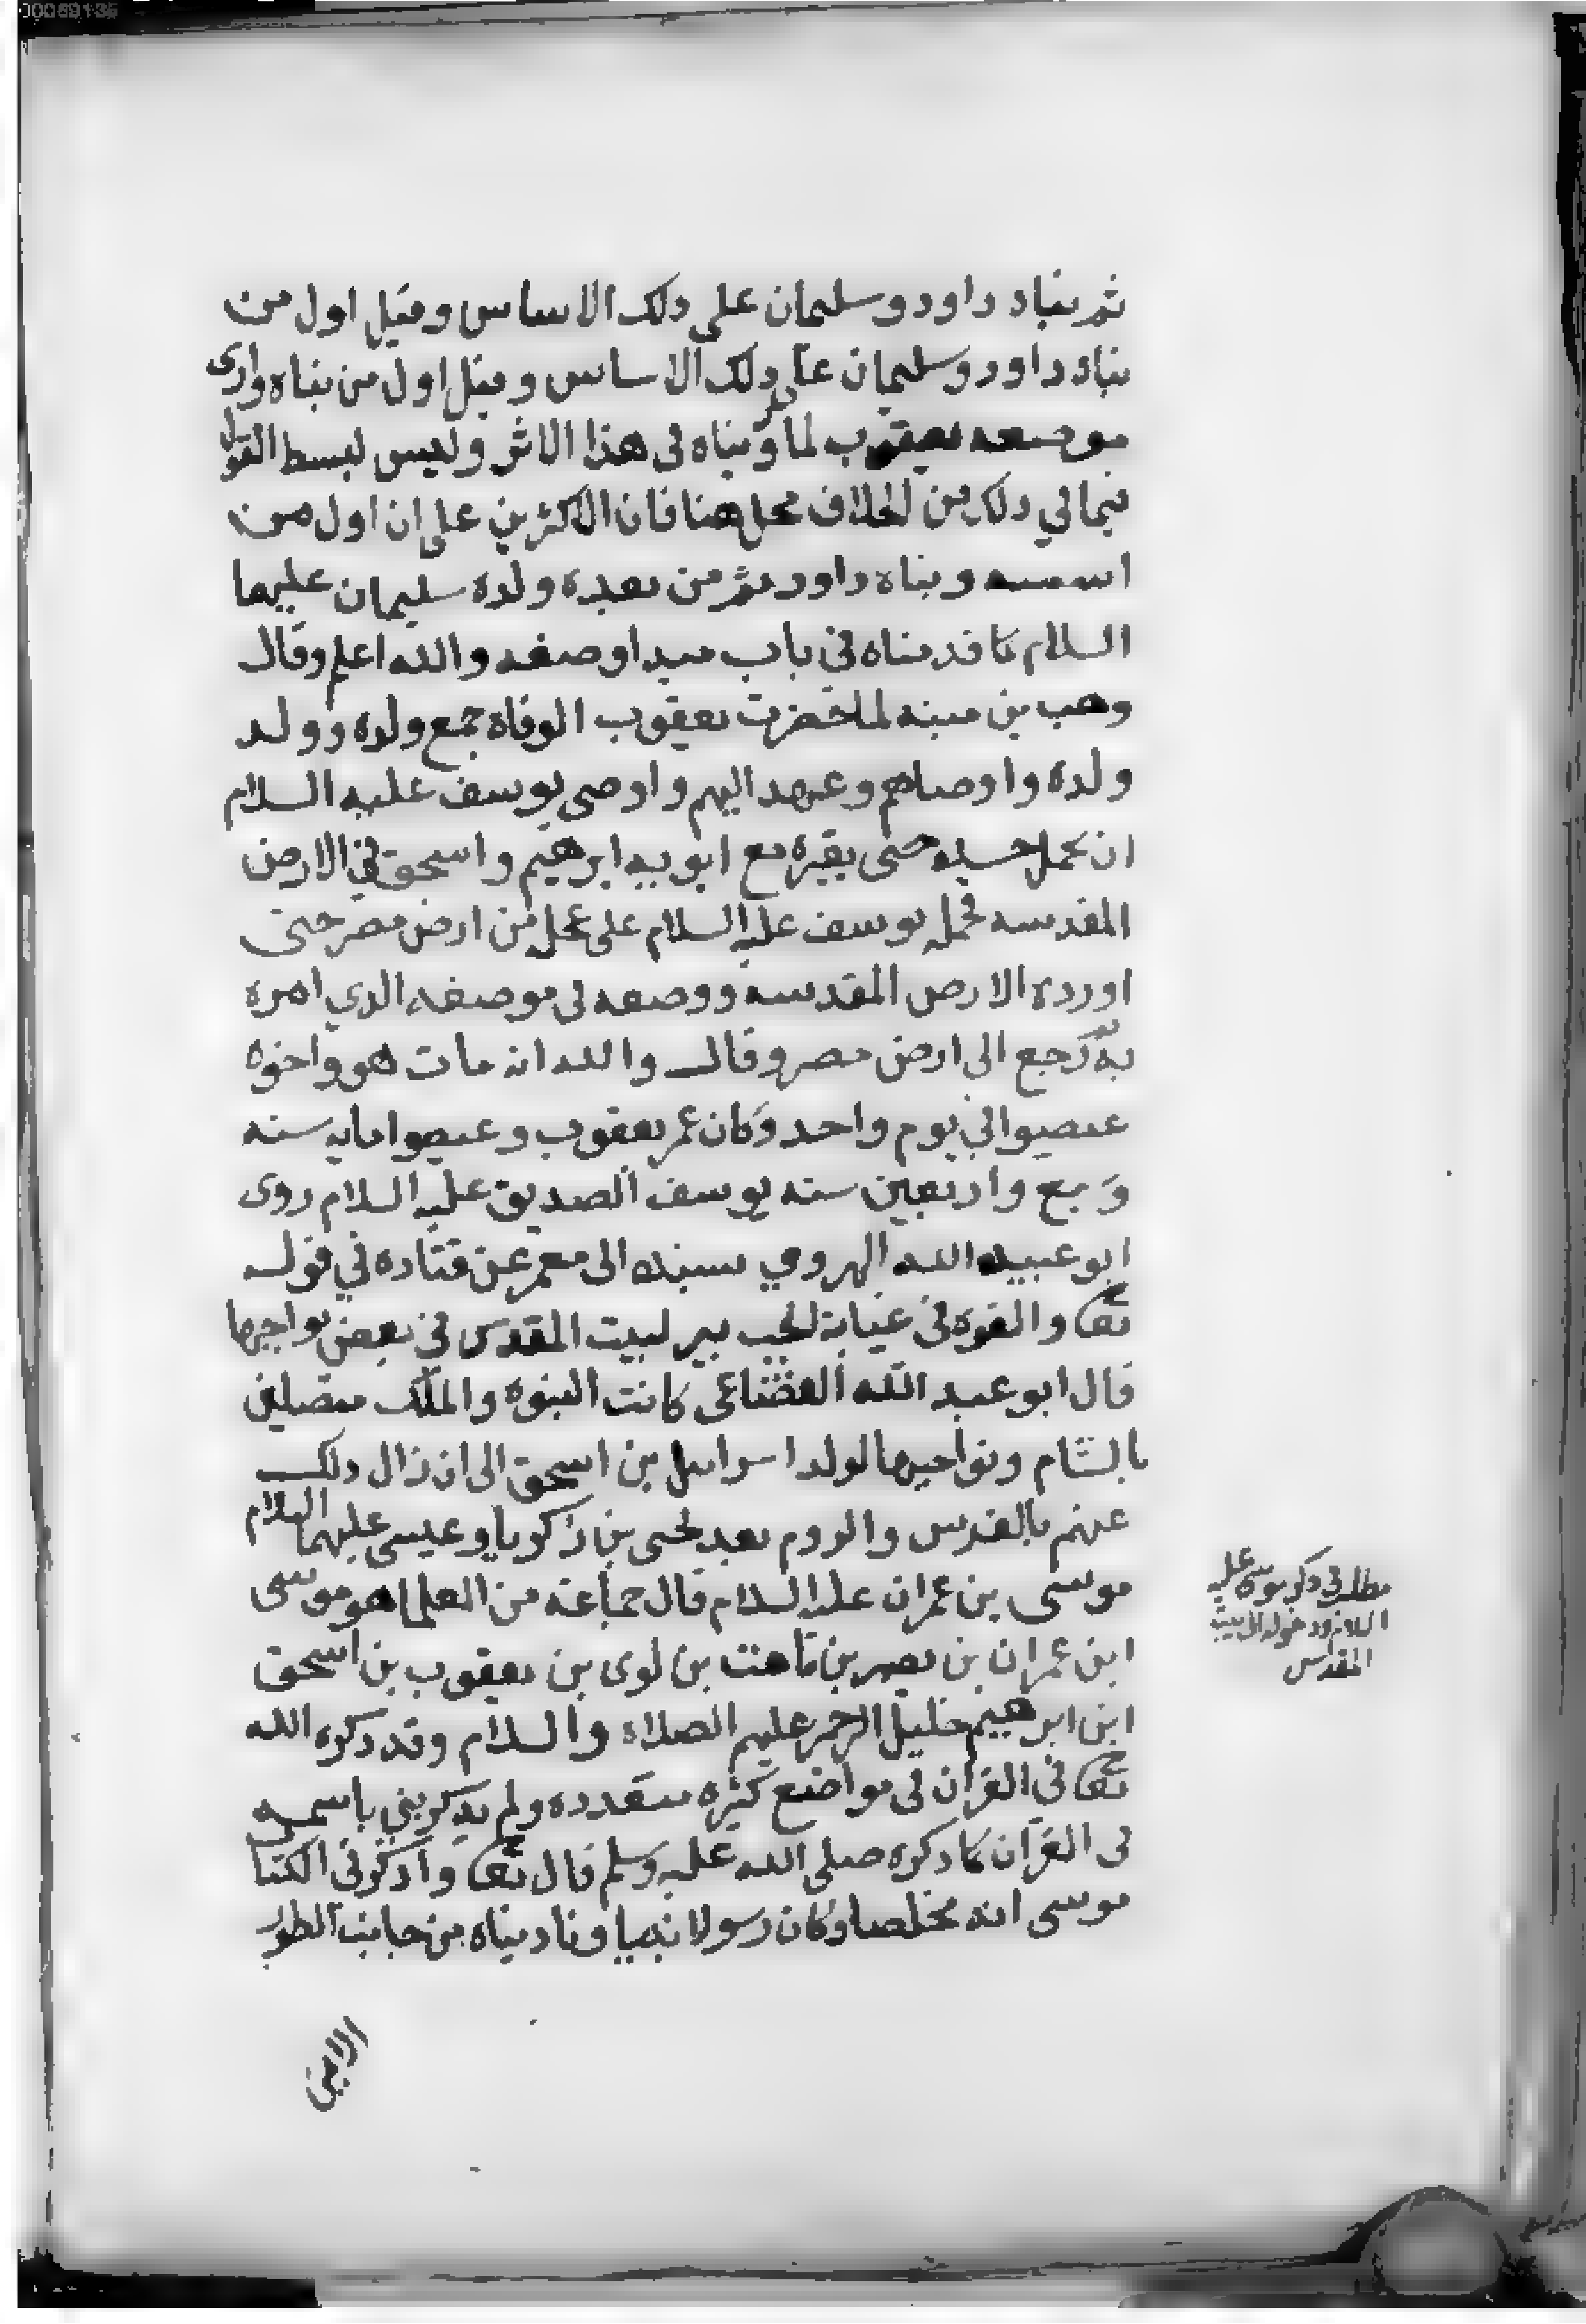 ثم بناه داود وسليمان على دلك الاساس وقيل اول من
بناه داود وسليمان على دلك الاساس وقيل اول من بناه وارى
موضعه يعقوب لما وبناه في هذا الاثر وليس لبسط القول
فيما في دلك من الخلاف محل هنا فان الاكثرين على ان اول من
اسسه وبناه داود ثم من بعده ولده سليمان عليهما
السلام كما قدمناه في باب مبدا وضعه والله اعلم وقال
وهب بن منبه لما حضرت يعقوب الوفاة جمع ولده وولد
ولده واوصاهم وعهد اليهم واوصى يوسف عليه السلام
ان يحمل جسده حتى يقبره مع ابويه ابرهيم واسحق في الارض
المقدسه فحمله يوسف عليه السلام على عجل من ارض مصر حتى
اورده الارض المقدسه ووضعه في موضعه الدي امره
به ثم رجع الى ارض مصر وقال والله انه مات هو واخوه
عيصوا في يوم واحد وكان عمر يعقوب وعيصوا مايه سنه
وسبع واربعين سنه يوسف الصديق عليه السلام روى
ابو عبيد الله الهروي بسنده الى معمر عن قتاده في قوله
تعا والقوه في غيابة الجب بير لبيت المقدس في بعض نواحيها
قال ابو عبد الله القضاعي كانت النبوه والملك متصلين
بالشام ونواحيها لولد اسراىيل بن اسحق الى ان زال دلك
عنهم بالفرس والروم بعد يحيى بن زكريا وعيسى عليهما السلام
موسى بن عمران عليه السلام قال جماعة من العلما هو موسى
ابن عمران بن يصهر بن قاهت بن لوى بن يعقوب بن اسحق
ابن ابرهيم خليل الرحمن عليهم الصلاة والسلام وقد دكره الله
تعا في القران في مواضع كثيره متعدده ولم يدكر نبي باسمه
في القران كما دكره صلى الله عليه وسلم قال تعا وادكر في الكتاب
موسى انه مخلصا وكان رسولا نبيا وناديناه من جانب الطور
الايمن
مطلب في دكر موسى عليه
السلام ودخوله الى بيت
المقدس
00069135